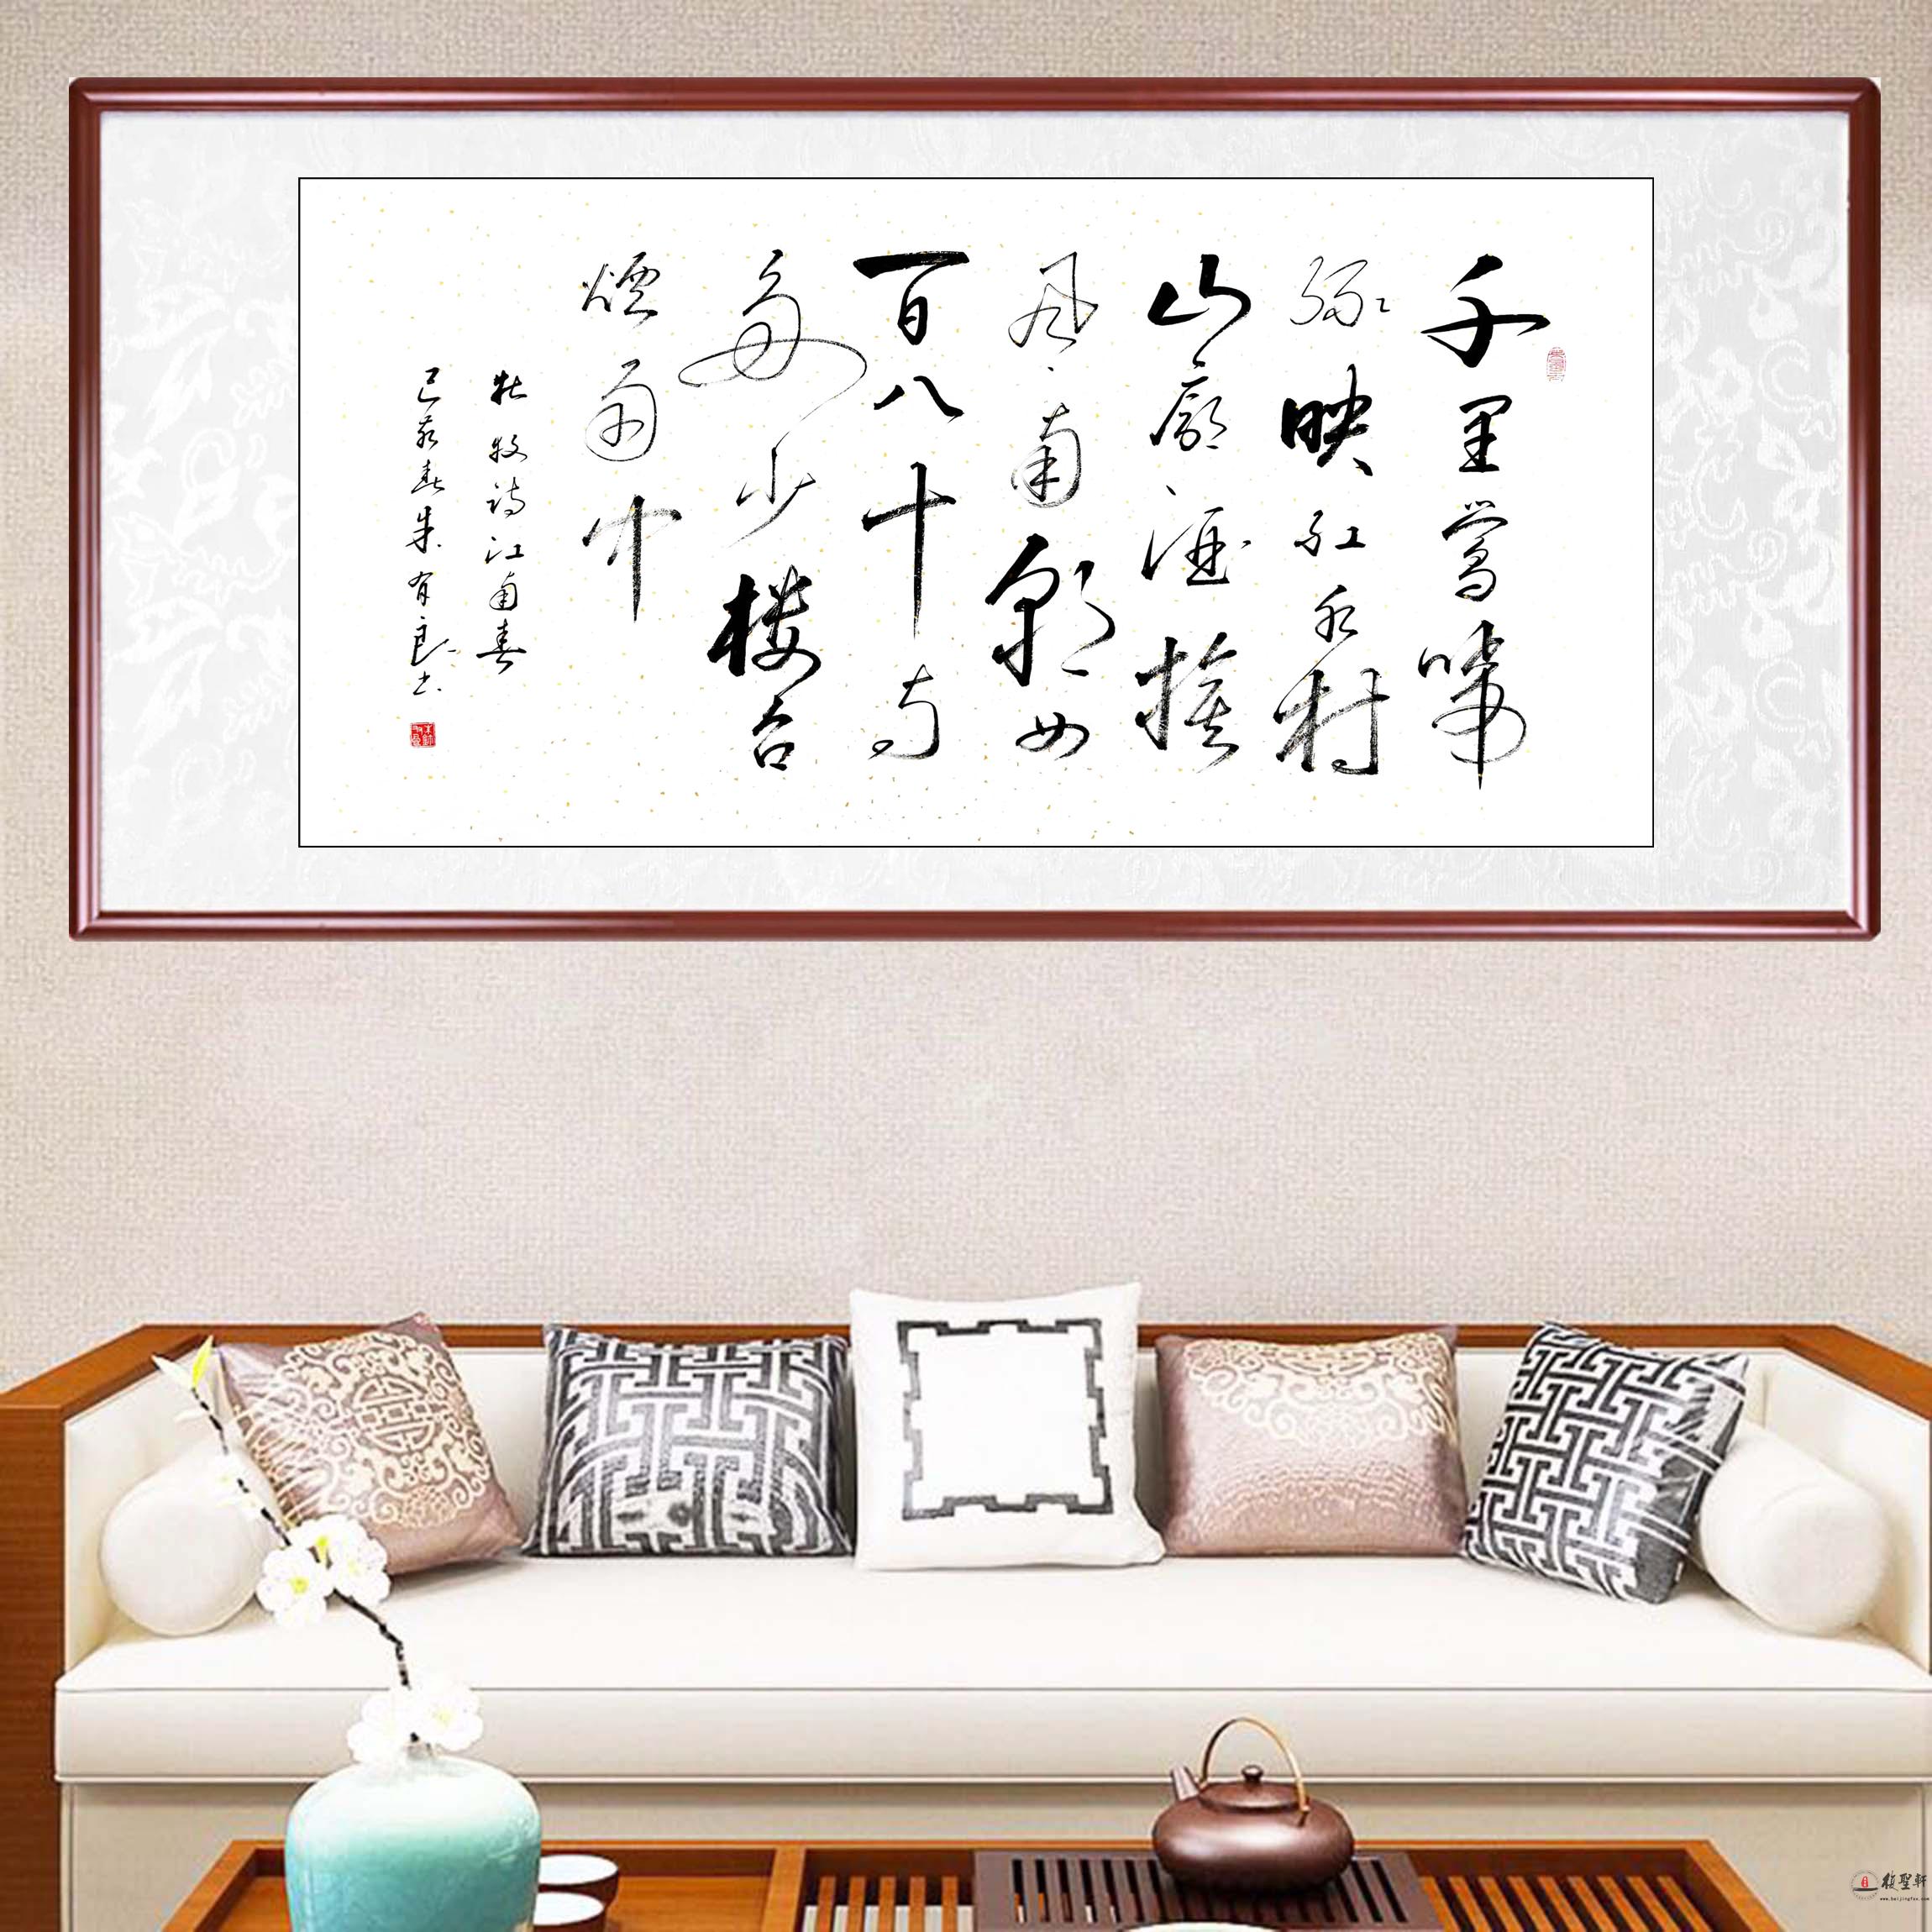 千里鶯啼
綠映紅水村
山廓酒旗
風南朝四
百八十寺
多少楼台
煙雨中
杜牧詩江南春
己亥春朱有良书
聖軒
www.beijingfsx.com